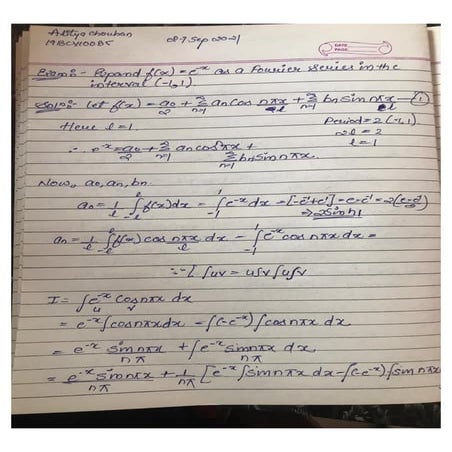 Aditya chouhan
19BCV100B5
08-7 Sep 2021
DATE
PAGE
Exam:- Expand f(x) = e^-x as a Fourier series in the
interval (-1,1)
Soln:- let f(x) = a0/2 + ∞Σn=1 an cos nπx/l + ∞Σn=1 bn sin nπx/l —①
Here l=1. Period = 2 (-1,1)
2l = 2
l = 1
∴ e^-x = a0/2 + ∞Σn=1 an cos nπx +
∞Σn=1 bn sin nπx.
Now, a0, an, bn.
a0 = 1/l ∫-l^l f(x) dx = ∫-1^1 e^-x dx = [-e^-1 + e^1] = e - e^-1 = 2(e-e^-1)/2
⇒ 2 sinh 1
an = 1/l ∫-l^l f(x) cos nπx/l dx = ∫-1^1 e^-x cos nπx dx =
∵ [∫uv = u∫v ∫u∫v
I = ∫e^-x cos nπx dx
u v
= e^-x ∫cos nπx dx - ∫(-e^-x) ∫cos nπx dx
= e^-x sin nπx/nπ + ∫e^-x sin nπx/nπ dx
= e^-x sin nπx/nπ + 1/nπ [e^-x ∫sin nπx dx - ∫(-e^-x) ∫sin nπx